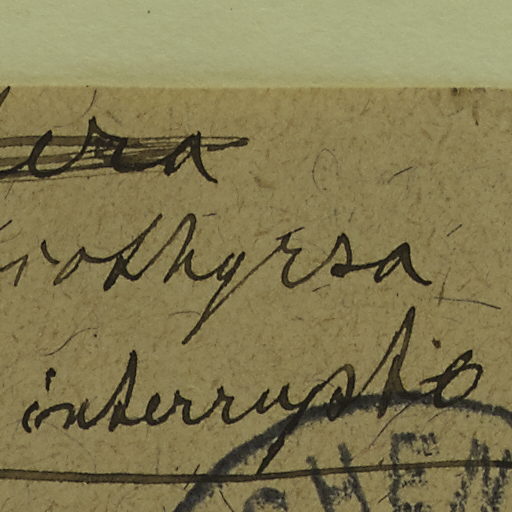 era
rothyrsa
interruptio
CHEN